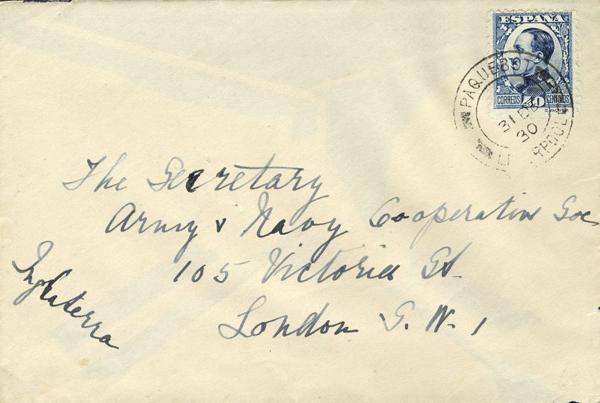 ESPAÑA
CORREOS 40 CENTIMOS
PAQUEBOT
31 DE
30
The Secretary
Army & Navy Cooperative Soc
105 Victoria St.
London S.W.1
Inglaterra